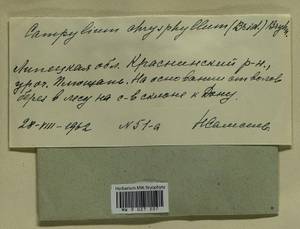 Campylium chrysophyllum (Brid.) Bryhn
Липецкая обл. Краснинский р-н,
уроч. Плющань. На основании стволов
берез в лесу на с-в склоне к Дону.
28-VIII-1962 N 51-a Н Самсель
Herbarium MW, Bryophyta